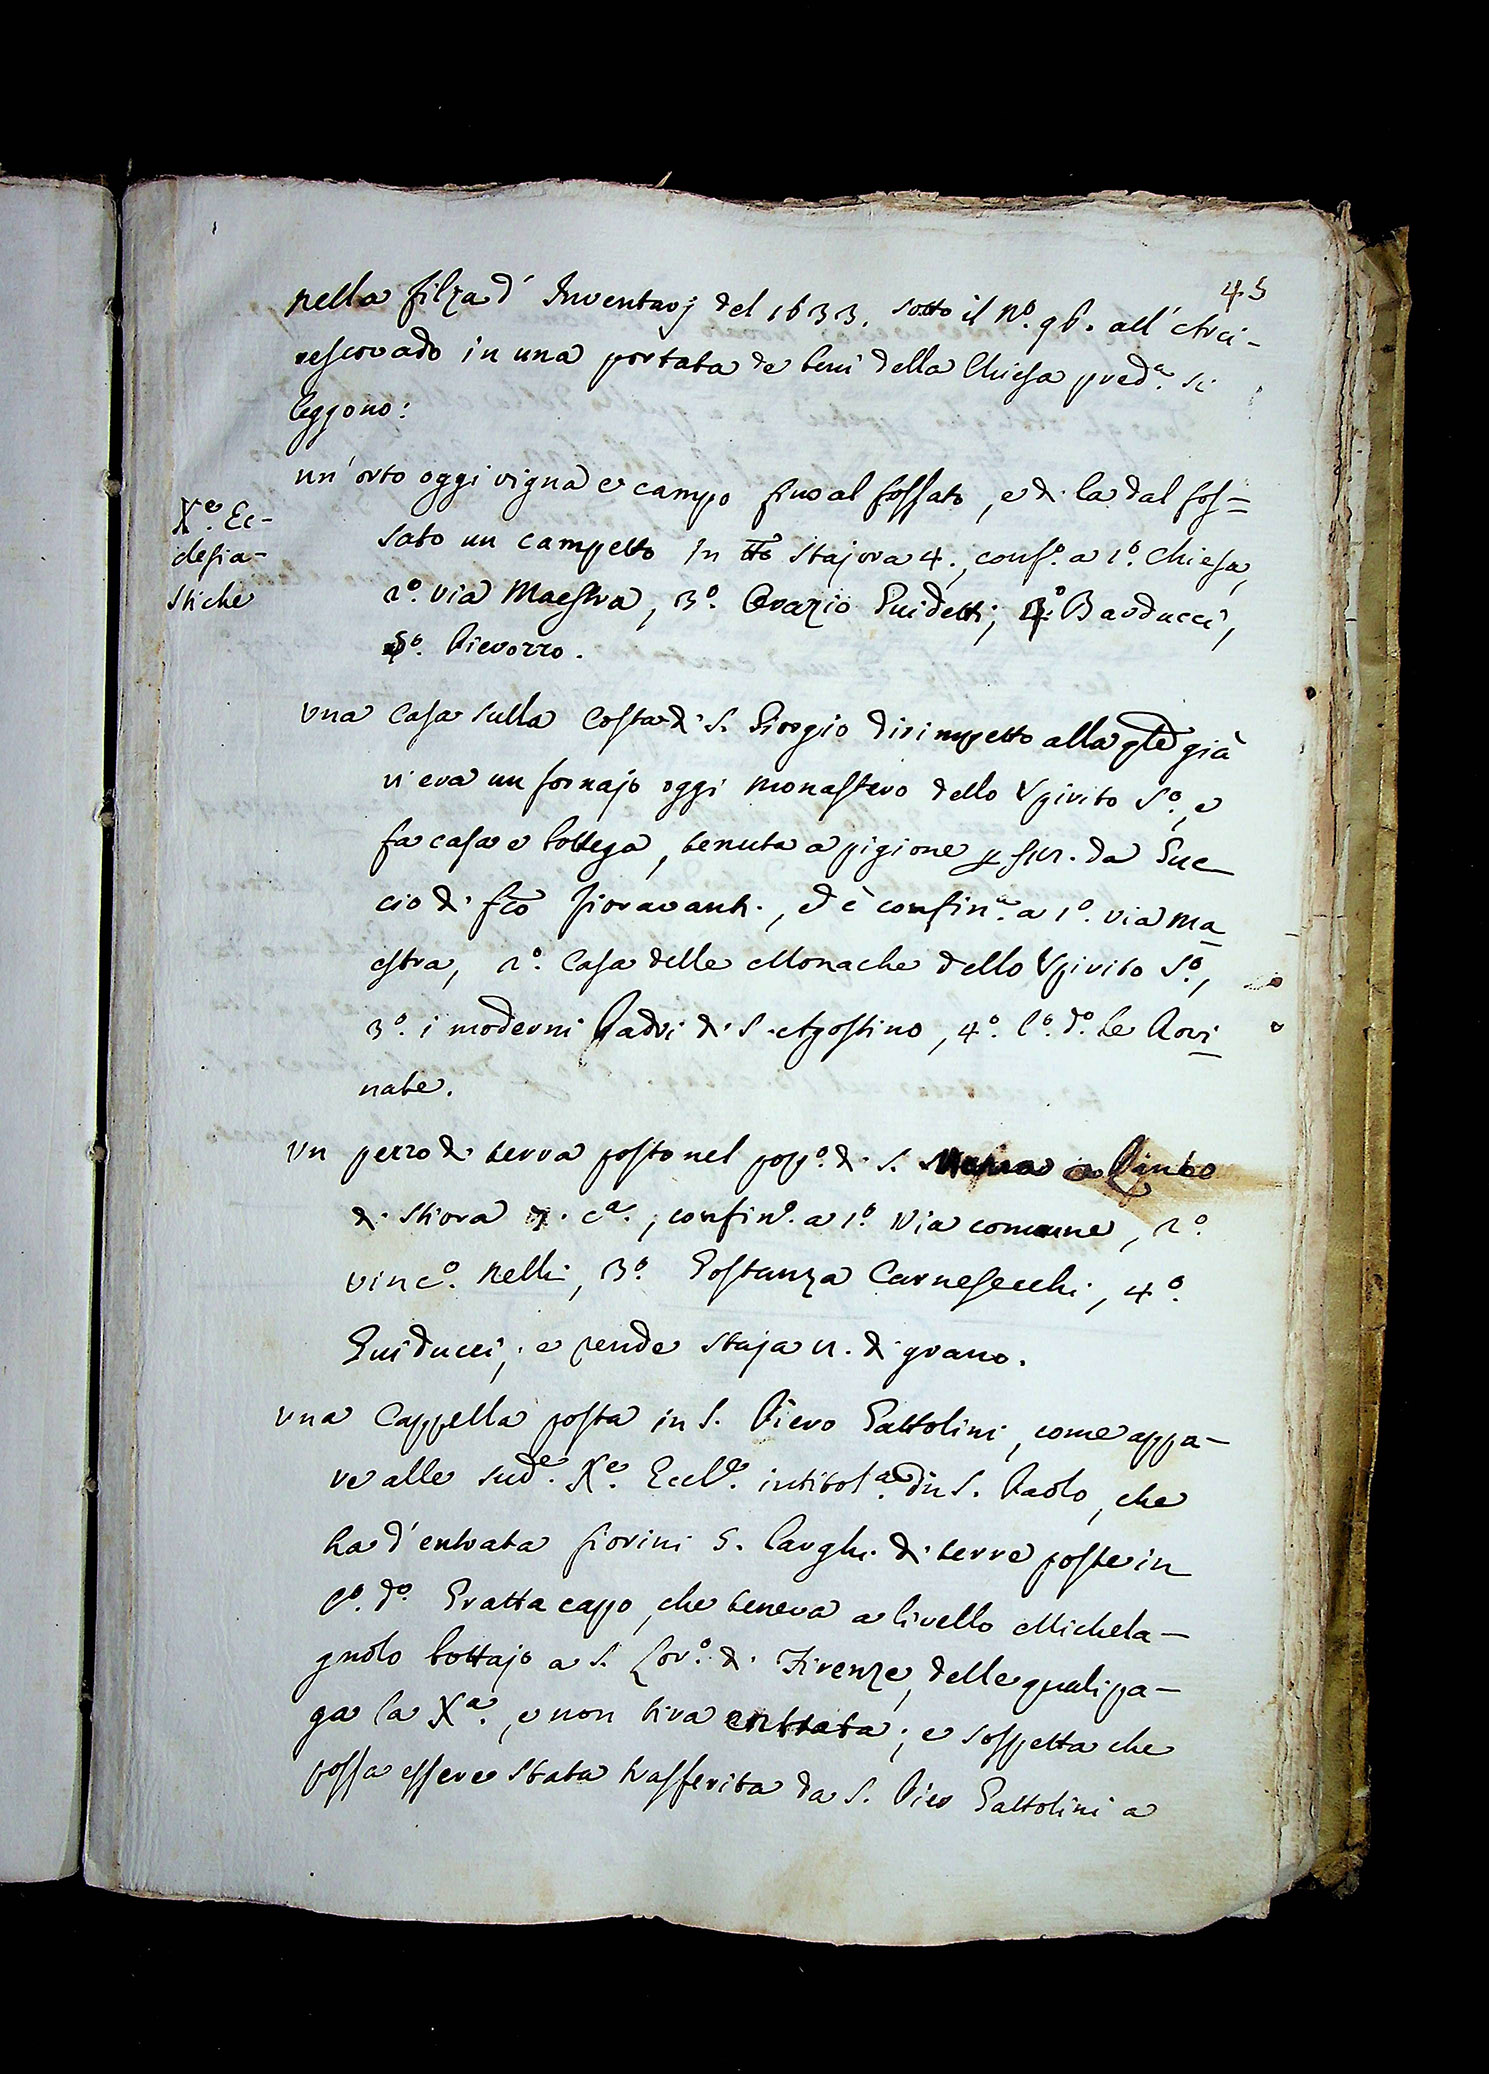 45
nella filza d' Inventarj del 1633. sotto il n.º 96. all' Arci-
vescovado in una portata de beni della Chiesa pred.ª si
leggono:
un' orto oggi vigna e campo fino al fossato, e di la dal fos=
X.e Ec-
clesia-
stiche
sato un campetto in tto stajora 4., conf.º a 1.º Chiesa,
2.º via Maestra, 3.º Orazio Guidetti, 4.º Barducci,
5.º Pievozzo.
una casa sulla Costa di S. Giorgio dirimpetto alla qle già
vi era un fornajo oggi monastero dello Spirito S.º, e
fa casa e bottega, tenuta a pigione p da Guc
cio di fco fioravanti., ed è confin.ª a 1.º via ma
estra, 2.º Casa delle Monache dello Spirito S.º,
3.º i moderni Padri di S. Agostino, 4.º l.º d.º Le Rovi
nate.
un pezzo di terra posto nel pop.º di S. Maria a Quinto
di stiora 7. c.ª, confin.º a 1.º Via comune, 2.º
vinc.º Nelli, 3.º Gostanza Carnesecchi, 4.º
Guiducci; e rende staja 12. di grano.
una Cappella posta in S. Piero Gattolini, come appa-
re alle sud.e X.e Eccl.e intitol.ª in S. Paolo, che
ha d' entrata fiorini 5. larghi di terre poste in
l.º d.º Grattacapo, che teneva a livello Michela-
gnolo bottajo a S. Lor.º di Firenze, delle quali pa-
ga la X.ª, e non tira entrata; e sospetta che
possa essere stata trasferita da S. Pier Gattolini a